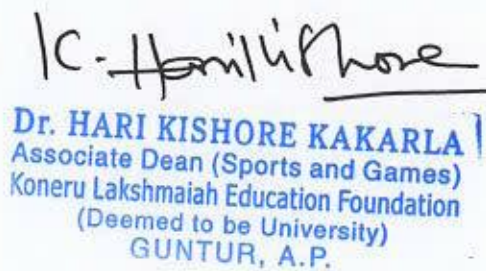 K. Harikishore
Dr. HARI KISHORE KAKARLA
Associate Dean (Sports and Games)
Koneru Lakshmaiah Education Foundation
(Deemed to be University)
GUNTUR, A.P.